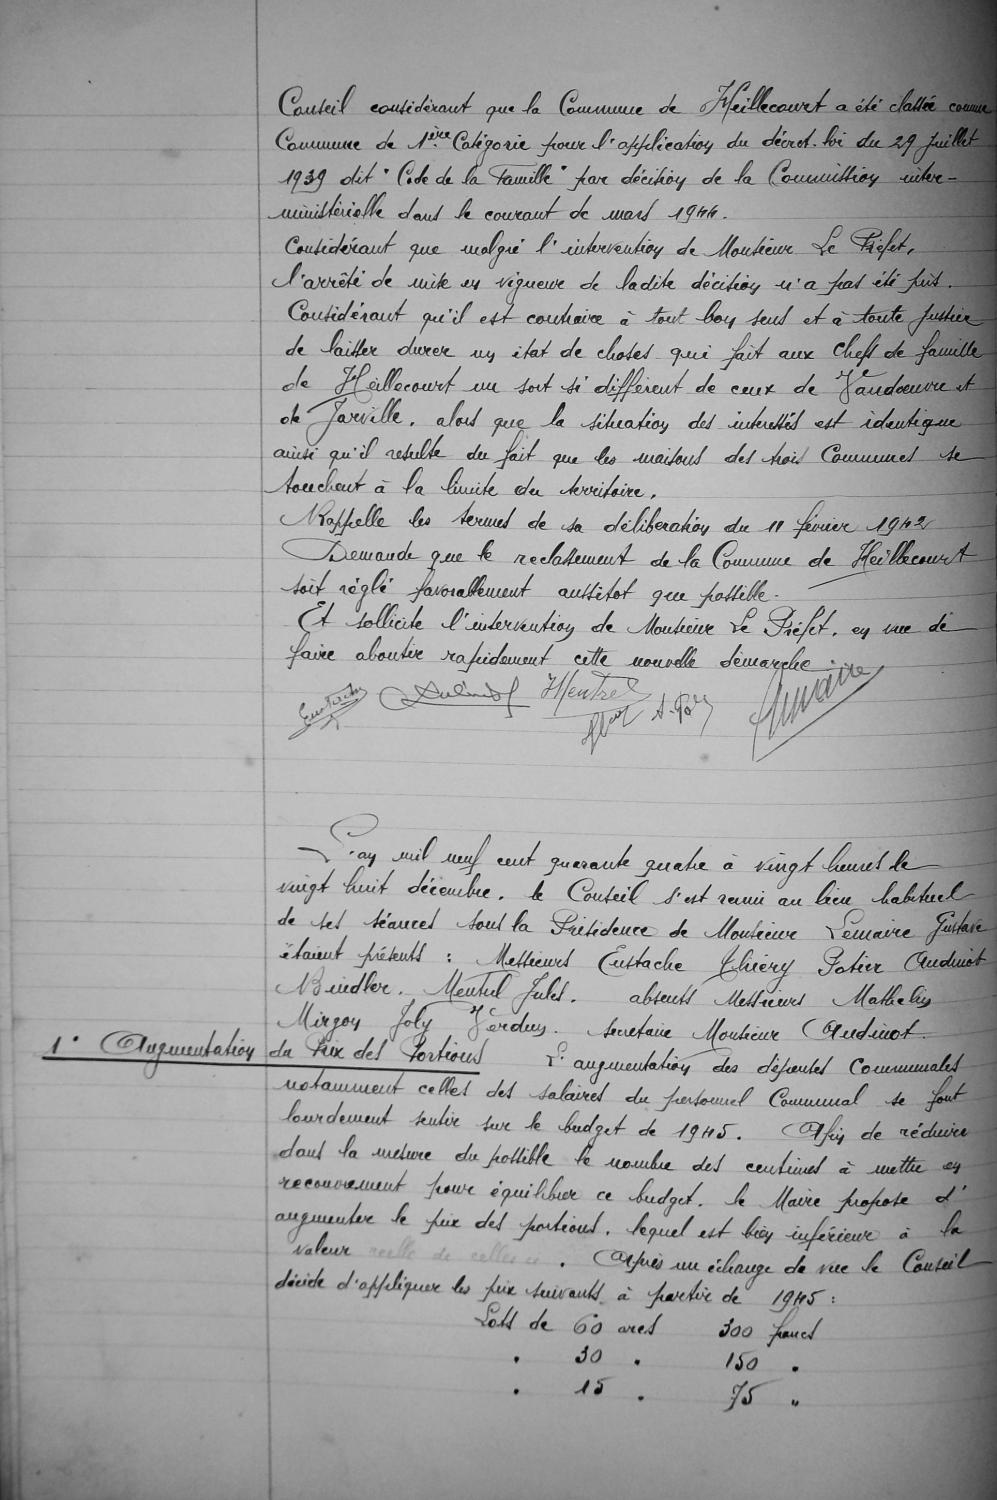 Conseil considérant que la Commune de Heillecourt a été classée comme
Commune de 1ère Catégorie pour l'application du décret-loi du 29 Juillet
1939 dit "Code de la Famille" par décision de la Commission inter-
ministérielle dans le courant de mars 1944.
Considérant que malgré l'intervention de Monsieur Le Préfet,
l'arrêté de mise en vigueur de ladite décision n'a pas été pris.
Considérant qu'il est contraire à tout bon sens et à toute justice
de laisser durer un état de choses qui fait aux Chefs de famille
de Heillecourt un sort si différent de ceux de Vandoeuvre et
de Jarville, alors que la situation des intéressés est identique
ainsi qu'il résulte du fait que les maisons des trois Communes se
touchent à la limite du territoire.
Rappelle les termes de sa délibération du 11 février 1942
Demande que le reclassement de la Commune de Heillecourt
soit réglé favorablement aussitot que possible.
Et sollicite l'intervention de Monsieur Le Préfet, en vue de
faire aboutir rapidement cette nouvelle démarche
Eustache Audinot JMentrel
Lemaire
L'an mil neuf cent quarante quatre à vingt heures le
vingt huit décembre, le Conseil s'est reuni au lieu habituel
de ses séances sous la Présidence de Monsieur Lemaire Gustave
étaient présents : Messieurs Eustache Thiéry Potier Audinot
Bindler. Mentrel Jules. absents Messieurs Mathelin
Mirgon Joly Verdun. secretaire Monsieur Audinot.
1° Augmentation du Prix des Portions L'augmentation des dépenses Communales
notamment celles des salaires du personnel Communal se font
lourdement sentir sur le budget de 1945. Afin de réduire
dans la mesure du possible le nombre des centimes à mettre en
recouvrement pour équilibrer ce budget, le Maire propose d'
augmenter le prix des portions, lequel est bien inférieur à la
valeur reelle de celles ci. Après un échange de vue le Conseil
décide d'appliquer les prix suivants à partir de 1945 :
Lots de 60 ares 300 francs
" 30 " 150 "
" 15 " 75 "